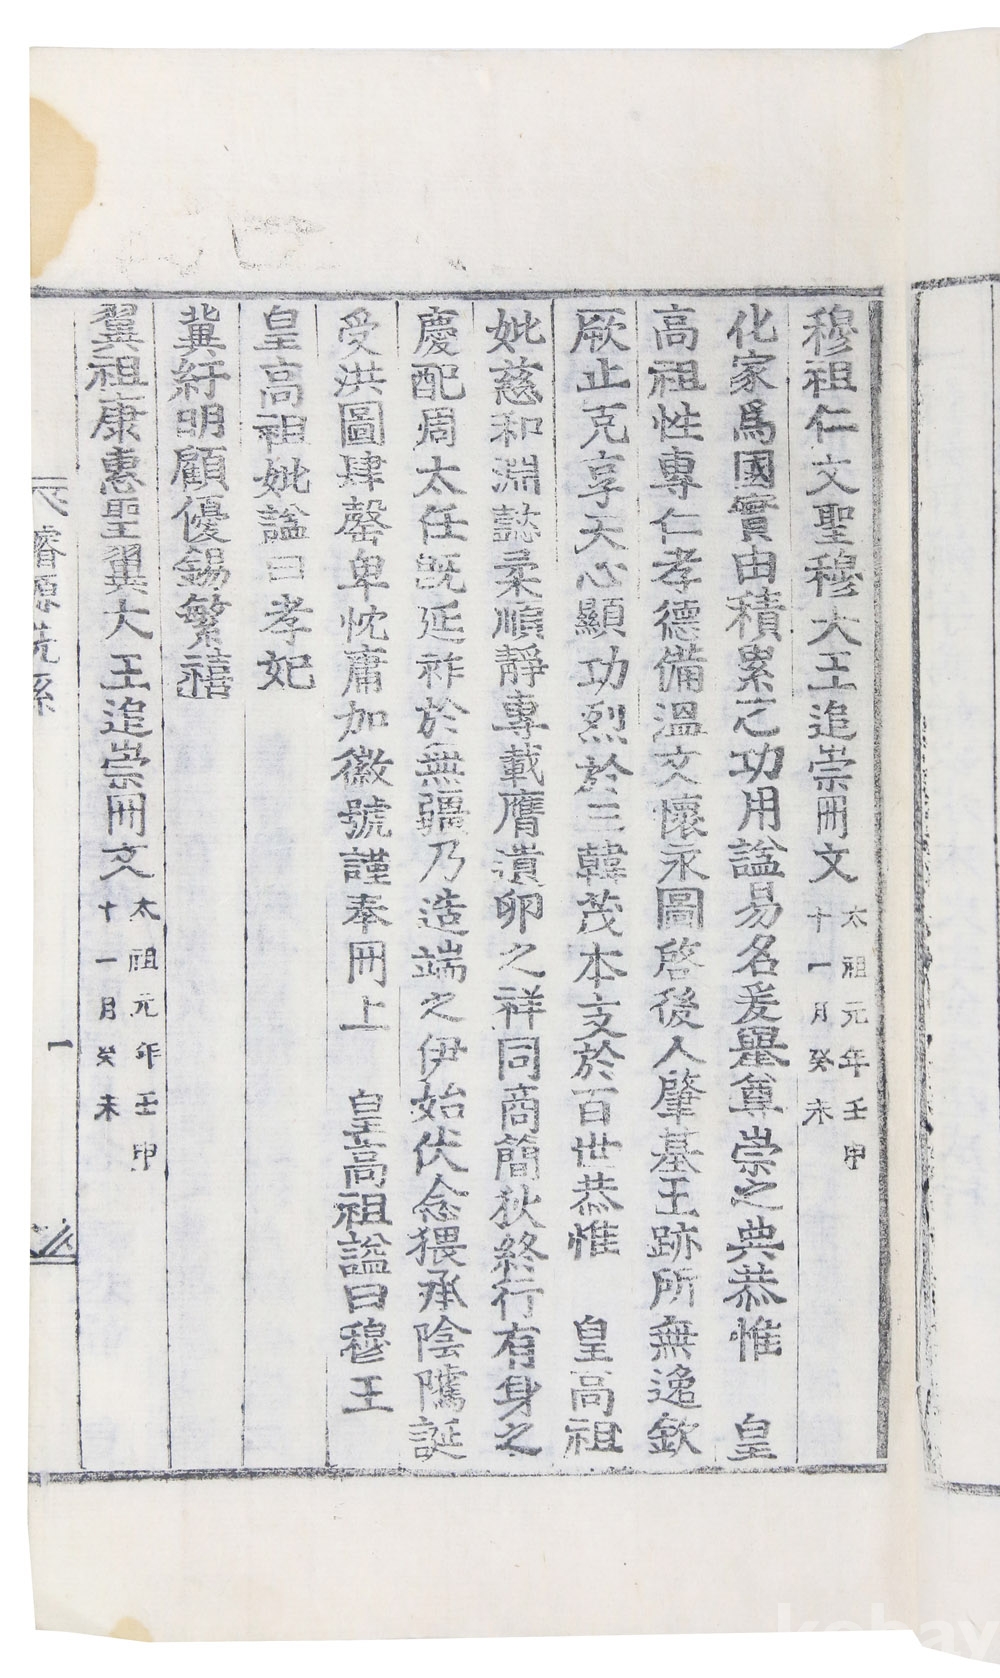 穆祖仁文聖穆大王追崇冊文 太祖元年壬申十一月癸未
化家爲國實由積累之功用諡易名爰舉尊崇之典恭惟 皇
高祖性專仁孝德備溫文懷永圖啓後人肇基王跡所無逸欽
厥止克享天心顯功烈於三韓茂本支於百世恭惟 皇高祖
妣慈和淵懿柔順靜專載膺遺卵之祥同商簡狄終行有身之
慶配周太任旣延祚於無疆乃造端之伊始伏念猥承陰隲誕
受洪圖肆罄卑忱庸加徽號謹奉冊上 皇高祖諡曰穆王
皇高祖妣諡曰孝妃
冀紆明顧優錫繁禧
翼祖康惠聖翼大王追崇冊文 太祖元年壬申十一月癸未
璿源先系
一
kobay